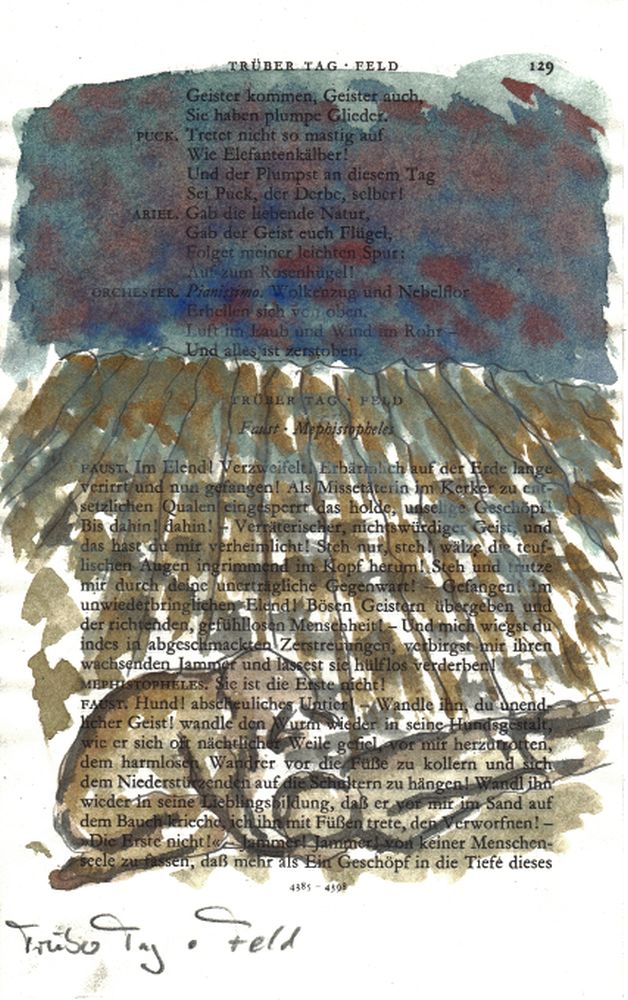 TRÜBER TAG · FELD 129
Geister kommen, Geister auch,
Sie haben plumpe Glieder.
PUCK. Tretet nicht so mastig auf
Wie Elefantenkälber!
Und der Plumpst an diesem Tag
Sei Puck, der Derbe, selber!
ARIEL. Gab die liebende Natur,
Gab der Geist euch Flügel,
Folget meiner leichten Spur:
Auf zum Rosenhügel!
ORCHESTER. Pianissimo. Wolkenzug und Nebelflor
Erhellen sich von oben.
Luft im Laub und Wind im Rohr –
Und alles ist zerstoben.
TRÜBER TAG · FELD
Faust · Mephistopheles
FAUST. Im Elend! Verzweifelt! Erbärmlich auf der Erde lange
verirrt und nun gefangen! Als Missetäterin im Kerker zu ent-
setzlichen Qualen eingesperrt das holde, unselige Geschöpf!
Bis dahin! dahin! – Verräterischer, nichtswürdiger Geist, und
das hast du mir verheimlicht! Steh nur, steh! wälze die teuf-
lischen Augen ingrimmend im Kopf herum! Steh und trutze
mir durch deine unerträgliche Gegenwart! – Gefangen! Im
unwiederbringlichen Elend! Bösen Geistern übergeben und
der richtenden, gefühllosen Menschheit! – Und mich wiegst du
indes in abgeschmackten Zerstreuungen, verbirgst mir ihren
wachsenden Jammer und lässest sie hülflos verderben!
MEPHISTOPHELES. Sie ist die Erste nicht!
FAUST. Hund! abscheuliches Untier! – Wandle ihn, du unend-
licher Geist! wandle den Wurm wieder in seine Hundsgestalt,
wie er sich oft nächtlicher Weile gefiel, vor mir herzutrotten,
dem harmlosen Wandrer vor die Füße zu kollern und sich
dem Niederstürzenden auf die Schultern zu hängen! Wandl ihn
wieder in seine Lieblingsbildung, daß er vor mir im Sand auf
dem Bauch krieche, ich ihn mit Füßen trete, den Verworfnen! –
»Die Erste nicht!« – Jammer! Jammer! von keiner Menschen-
seele zu fassen, daß mehr als Ein Geschöpf in die Tiefe dieses
4385 – 4398
Trüber Tag · Feld